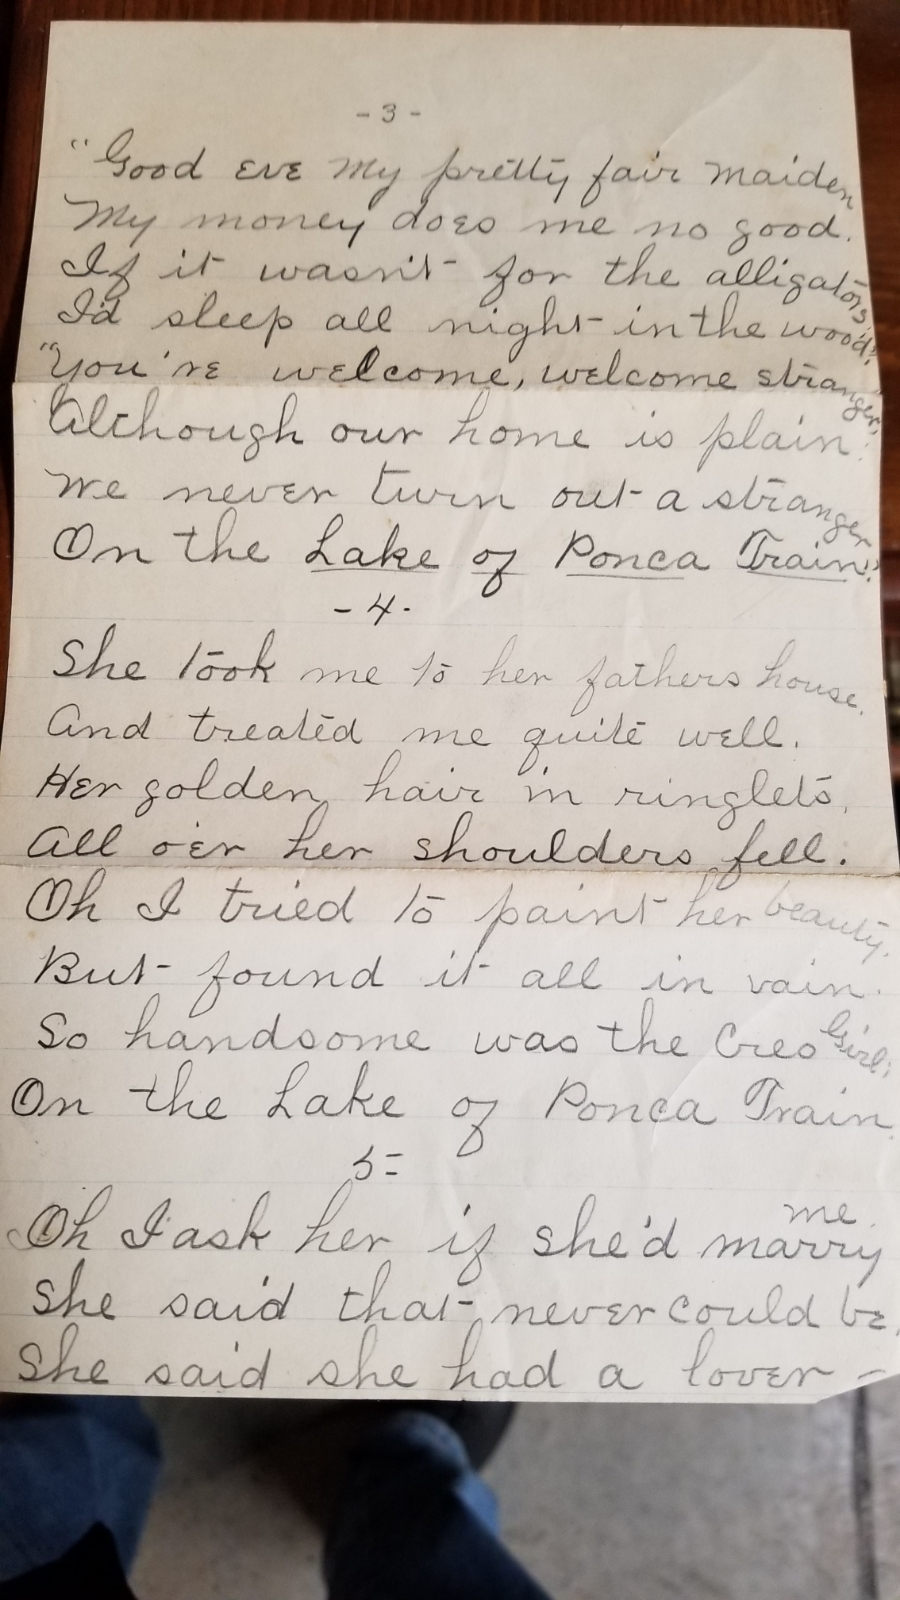 -3-
"Good eve my pretty fair maiden
My money does me no good.
If it wasn't for the alligators
I'd sleep all night in the wood."
"You're welcome, welcome stranger,
Although our home is plain.
We never turn out a stranger
On the Lake of Ponca Train."
-4-
She took me to her fathers house.
And treated me quite well.
Her golden hair in ringlets,
All o'er her shoulders fell.
Oh I tried to paint her beauty.
But found it all in vain.
So handsome was the Creo Girl;
On the Lake of Ponca Train
5=
Oh I ask her if she'd marry me.
She said that never could be,
She said she had a lover -